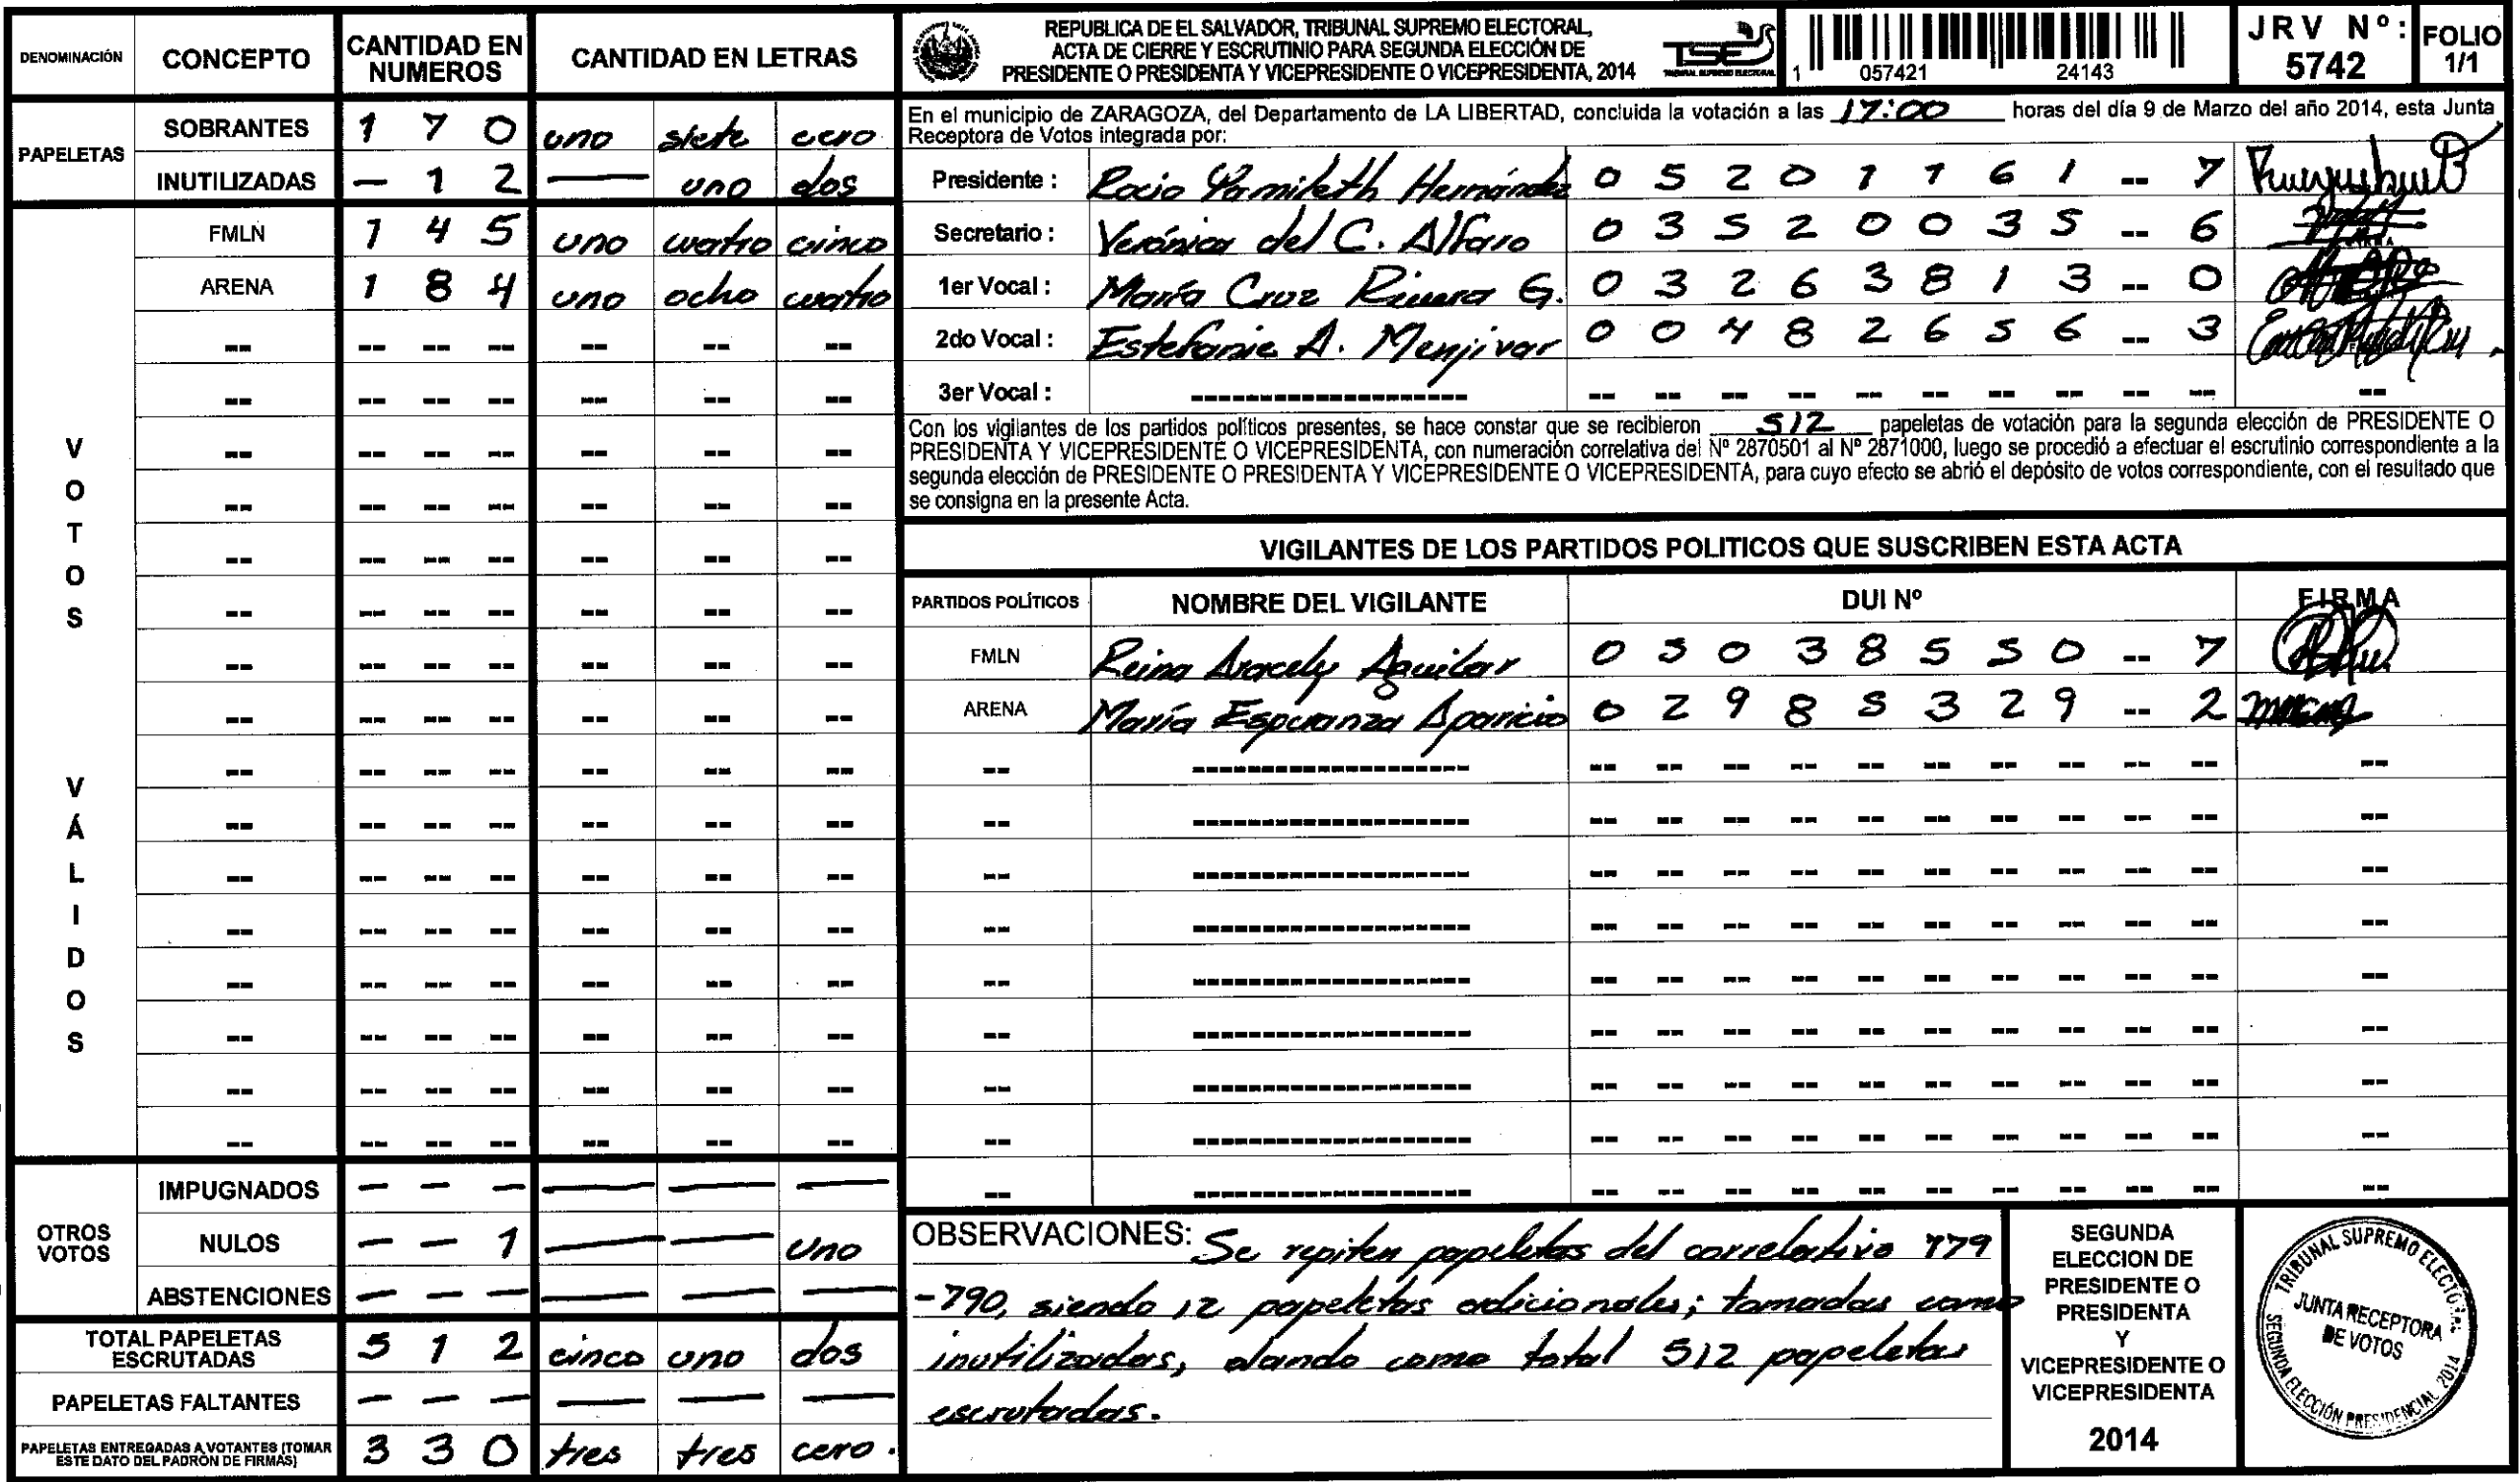 DENOMINACIÓN CONCEPTO CANTIDAD EN NUMEROS CANTIDAD EN LETRAS
PAPELETAS
SOBRANTES 1 7 0 uno siete cero
INUTILIZADAS — 1 2 — uno dos
VOTOS VÁLIDOS
FMLN 1 4 5 uno cuatro cinco
ARENA 1 8 4 uno ocho cuatro
OTROS VOTOS
IMPUGNADOS — — — — — —
NULOS — — 1 — — Uno
ABSTENCIONES — — — — — —
TOTAL PAPELETAS ESCRUTADAS 5 1 2 cinco uno dos
PAPELETAS FALTANTES — — — — — —
PAPELETAS ENTREGADAS A VOTANTES (TOMAR ESTE DATO DEL PADRON DE FIRMAS) 3 3 0 tres tres cero.
REPUBLICA DE EL SALVADOR, TRIBUNAL SUPREMO ELECTORAL,
ACTA DE CIERRE Y ESCRUTINIO PARA SEGUNDA ELECCIÓN DE
PRESIDENTE O PRESIDENTA Y VICEPRESIDENTE O VICEPRESIDENTA, 2014
TSE
TRIBUNAL SUPREMO ELECTORAL
1 057421 24143
JRV Nº: 5742
FOLIO 1/1
En el municipio de ZARAGOZA, del Departamento de LA LIBERTAD, concluida la votación a las 17:00 horas del día 9 de Marzo del año 2014, esta Junta
Receptora de Votos integrada por:
Presidente : Rocio Yamileth Hernández 0 5 2 0 1 1 6 1 -- 7
Secretario : Verónica del C. Alfaro 0 3 5 2 0 0 3 5 -- 6
1er Vocal : María Cruz Rivera G. 0 3 2 6 3 8 1 3 -- 0
2do Vocal : Estefanie A. Menjivar 0 0 4 8 2 6 5 6 -- 3
3er Vocal : ------------------- -- -- -- -- -- -- -- -- -- -- --
Con los vigilantes de los partidos políticos presentes, se hace constar que se recibieron 512 papeletas de votación para la segunda elección de PRESIDENTE O
PRESIDENTA Y VICEPRESIDENTE O VICEPRESIDENTA, con numeración correlativa del Nº 2870501 al Nº 2871000, luego se procedió a efectuar el escrutinio correspondiente a la
segunda elección de PRESIDENTE O PRESIDENTA Y VICEPRESIDENTE O VICEPRESIDENTA, para cuyo efecto se abrió el depósito de votos correspondiente, con el resultado que
se consigna en la presente Acta.
VIGILANTES DE LOS PARTIDOS POLITICOS QUE SUSCRIBEN ESTA ACTA
PARTIDOS POLÍTICOS NOMBRE DEL VIGILANTE DUI Nº FIRMA
FMLN Reina Aracely Aguilar 0 5 0 3 8 5 5 0 -- 7
ARENA María Esperanza Aparicio 0 2 9 8 5 3 2 9 -- 2
OBSERVACIONES: Se repiten papeletas del correlativo 779
-790, siendo 12 papeletas adicionales; tomadas como
inutilizadas, dando como total 512 papeletas
escrutadas.
SEGUNDA
ELECCION DE
PRESIDENTE O
PRESIDENTA
Y
VICEPRESIDENTE O
VICEPRESIDENTA
2014
TRIBUNAL SUPREMO ELECTORAL
JUNTA RECEPTORA
DE VOTOS
SEGUNDA ELECCIÓN PRESIDENCIAL 2014